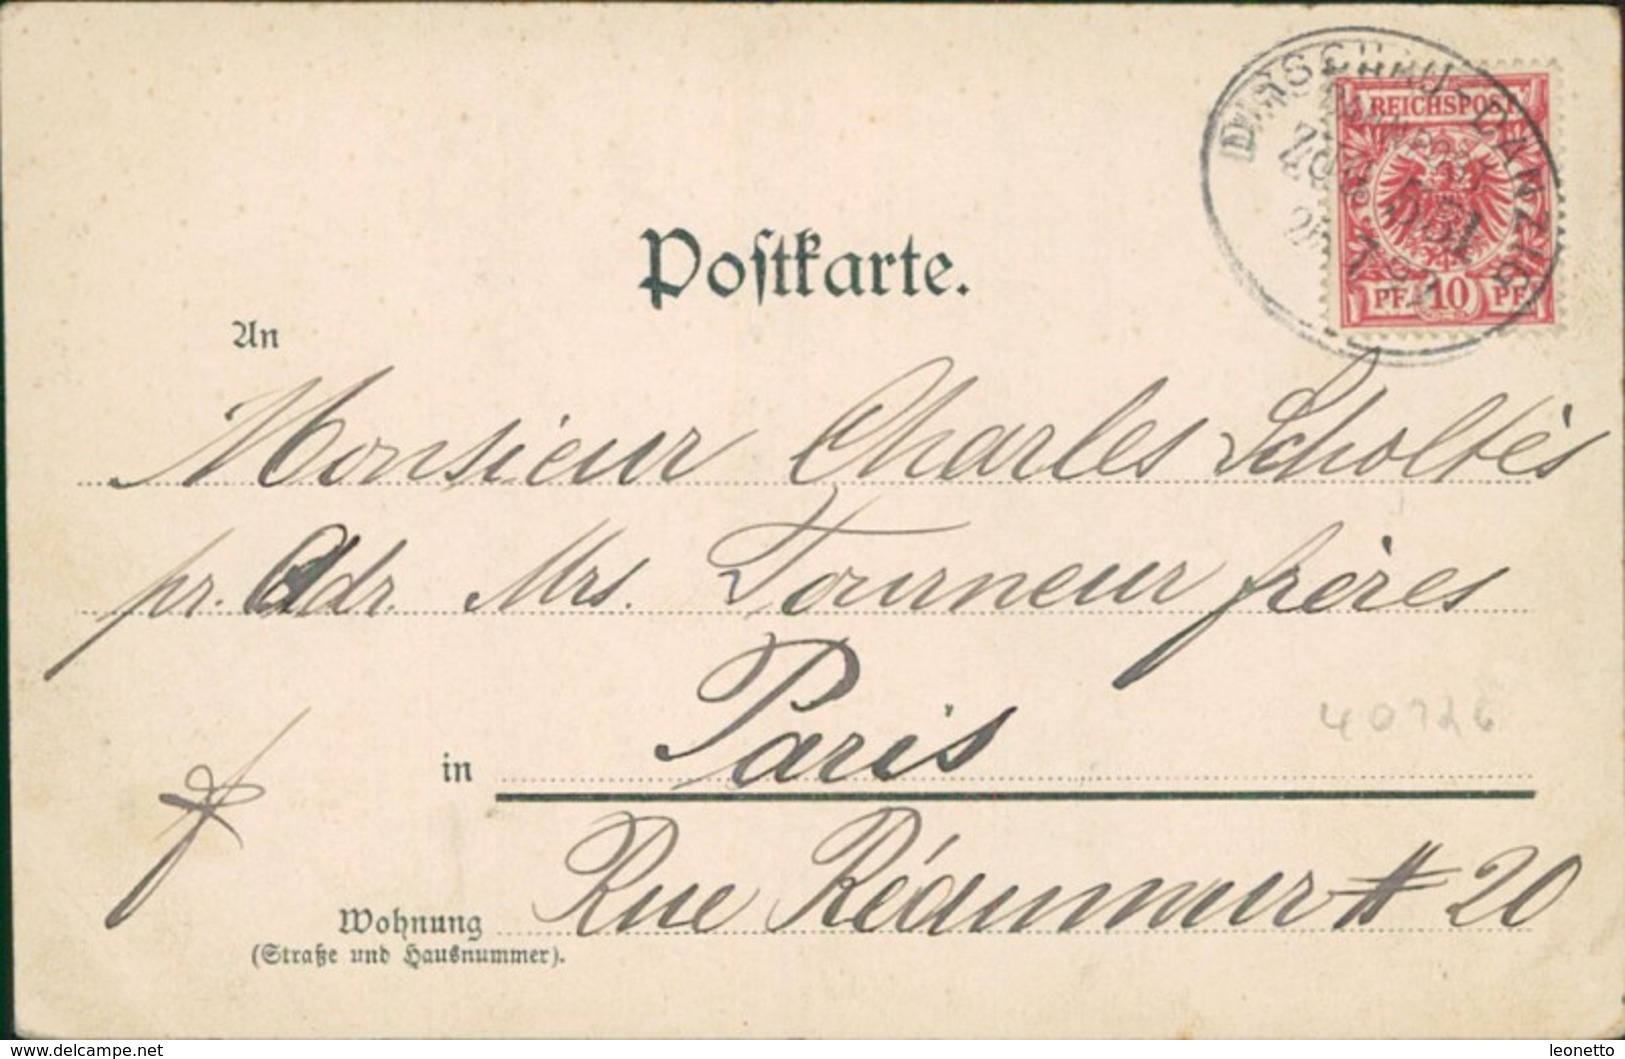 DIRSCHAU-DANZIG
BAHNPOST
ZUG 531
REICHSPOST
PF 10 PF
Postkarte.
An
Monsieur Charles Scholtès
pr. Adr. Mrs. Tourneur frères
Paris
40726
in
Rue Réaumur # 20
Wohnung
(Straße und Hausnummer).
www.delcampe.net
leonetto